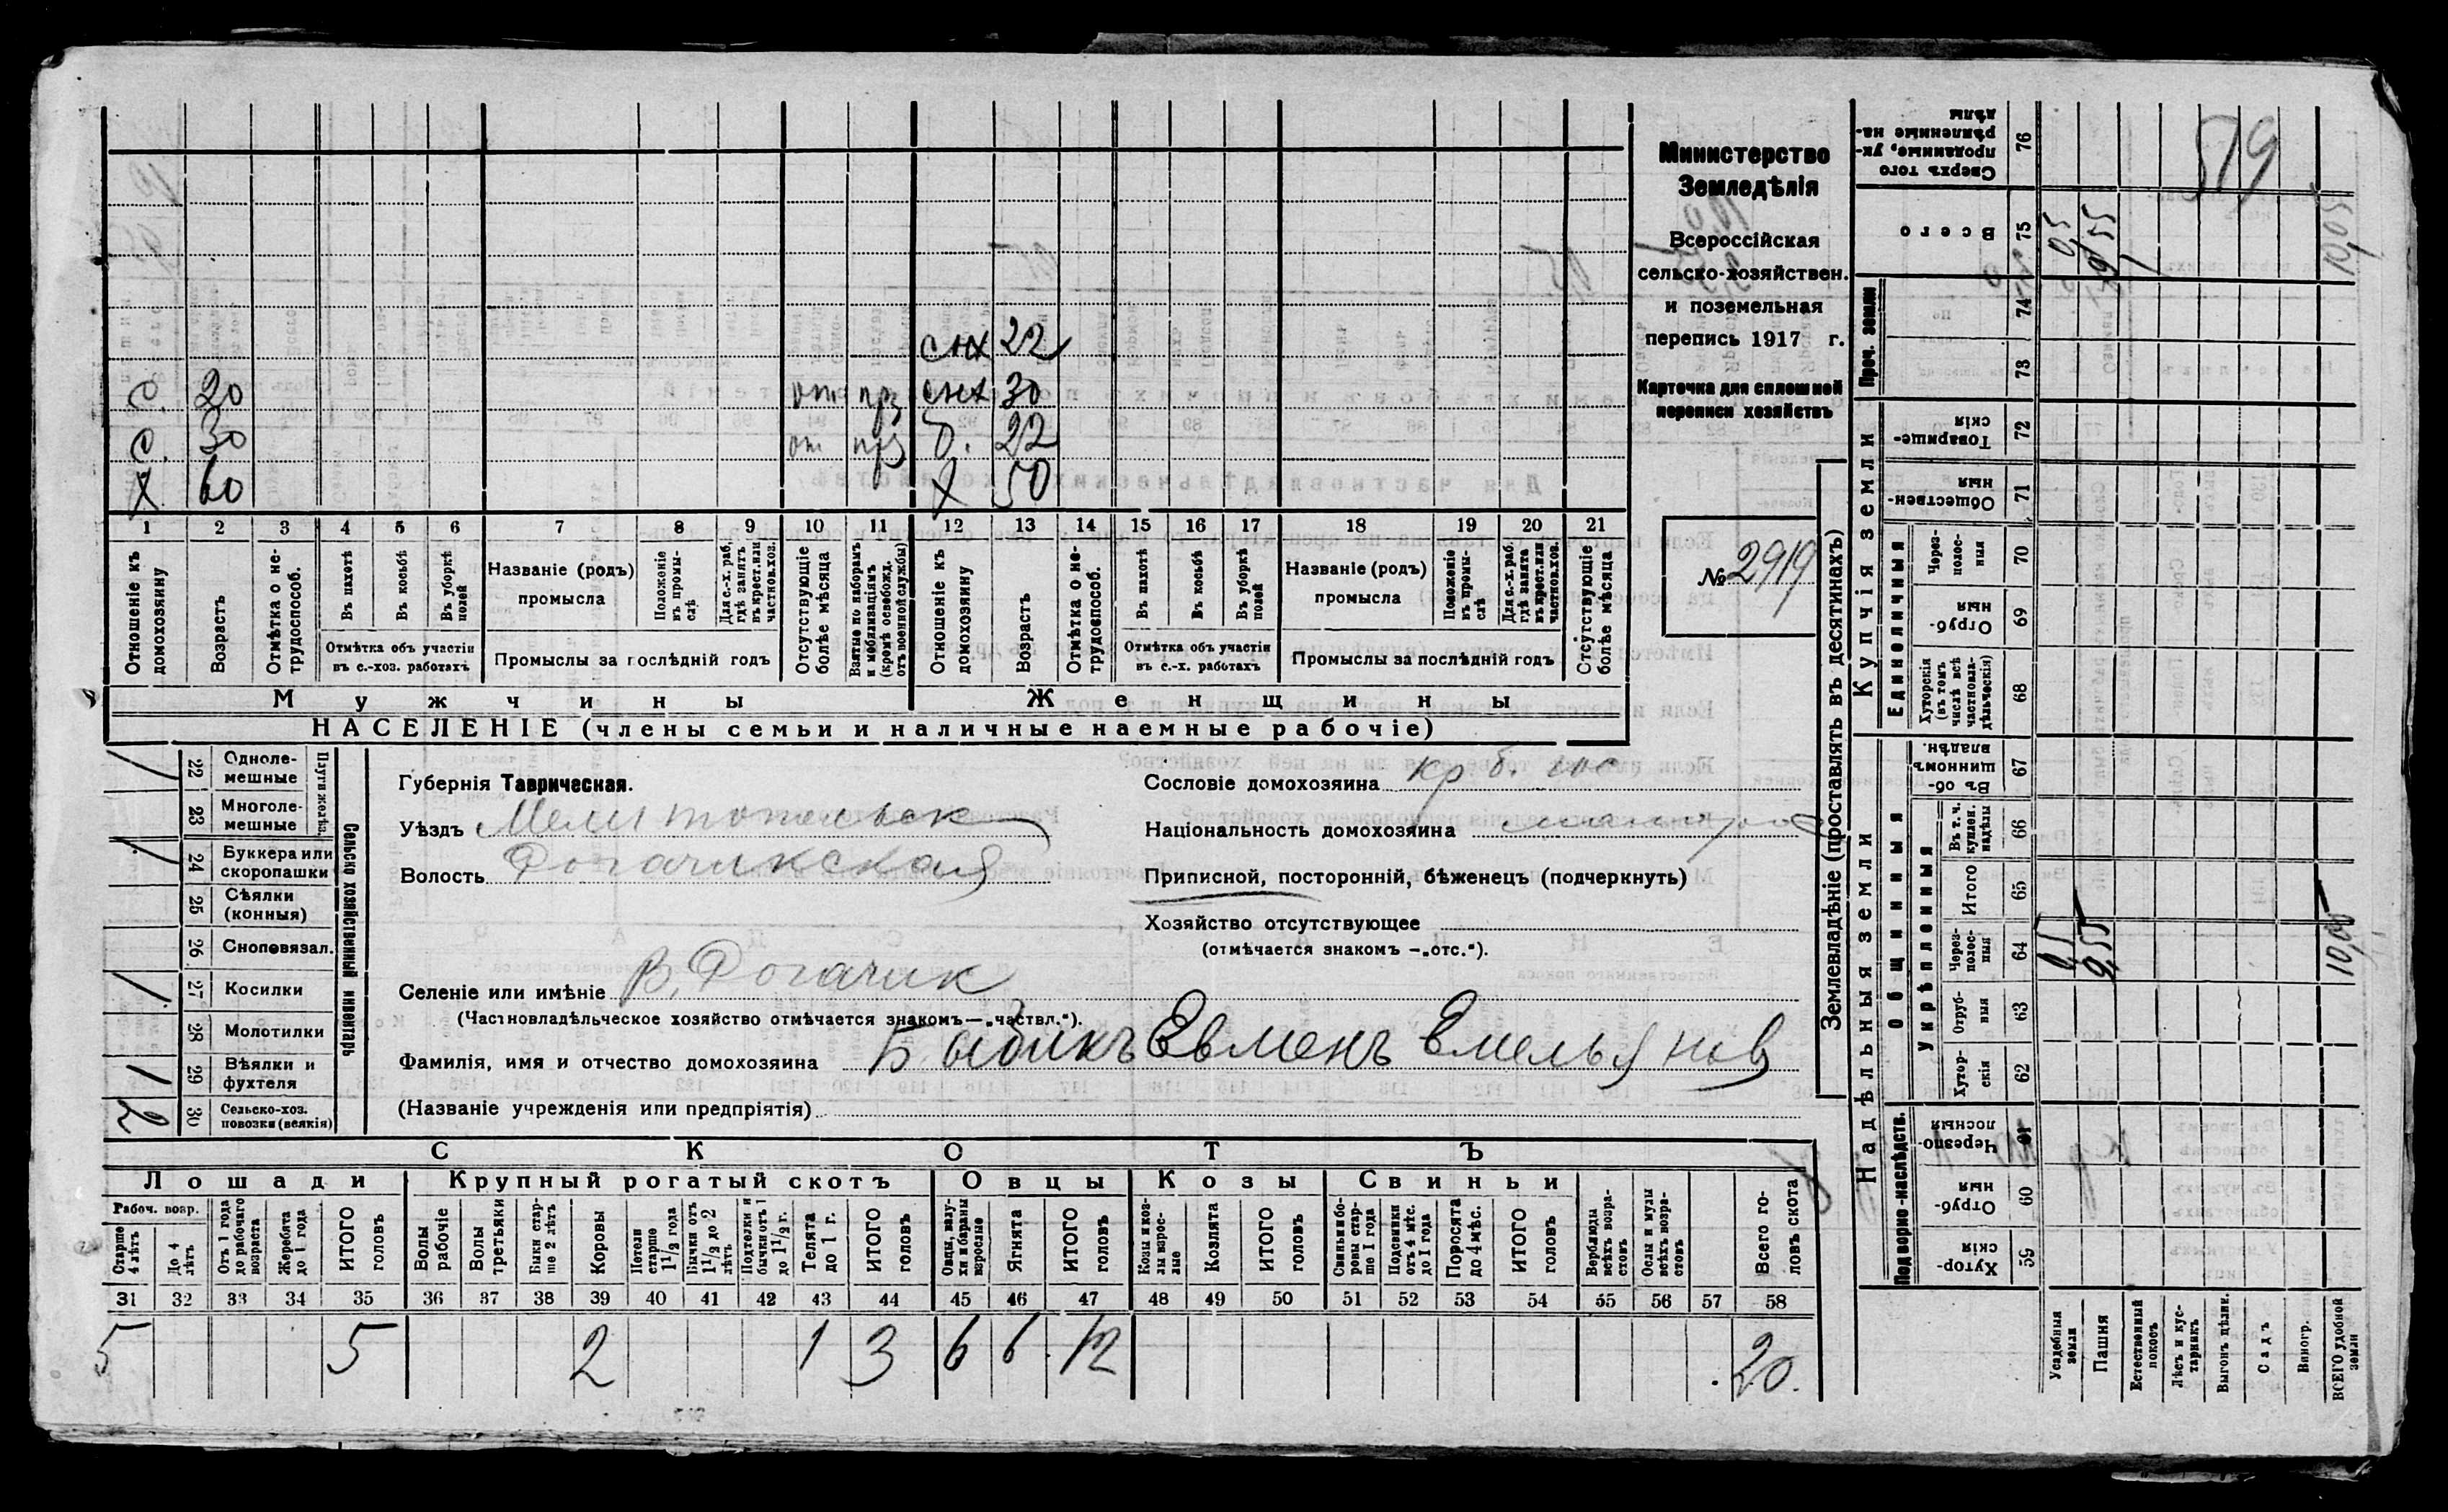 Министерство
Земледѣлія
Всероссійская
сельско-хозяйствен.
и поземельная
перепись 1917 г.
Карточка для сплошной
переписи хозяйствъ
№ 2919
снх 22
с. 20 от прз снх 30
с. 30 от прз б. 22
х 60 х 50
1 2 3 4 5 6 7 8 9 10 11 12 13 14 15 16 17 18 19 20 21
Отношеніе къ домохозяину
Возрастъ
Отмѣтка о нетрудоспособ.
Въ пахотѣ
Въ косьбѣ
Въ уборкѣ полей
Отмѣтка объ участіи въ с.-хоз. работахъ
Названіе (родъ) промысла
Положеніе въ промыслѣ
Для с.-х. раб. гдѣ занятъ въ крест. или частнов. хоз.
Промыслы за послѣдній годъ
Отсутствующіе болѣе мѣсяца
Взятые по наборамъ и мобилизаціямъ (кромѣ освобожд. отъ военной службы)
Отношеніе къ домохозяину
Возрастъ
Отмѣтка о нетрудоспособ.
Въ пахотѣ
Въ косьбѣ
Въ уборкѣ полей
Отмѣтка объ участіи въ с.-х. работахъ
Названіе (родъ) промысла
Положеніе въ промыслѣ
Для с.-х. раб. гдѣ занята въ крест. или частнов. хоз.
Промыслы за послѣдній годъ
Отсутствующіе болѣе мѣсяца
Мужчины Женщины
НАСЕЛЕНІЕ (члены семьи и наличные наемные рабочіе)
22 Однолемешные
23 Многолемешные
Плуги желѣз.
24 Буккера или скоропашки
25 Сѣялки (конныя)
26 Сноповязал.
27 Косилки
28 Молотилки
29 Вѣялки и фухтеля 1
30 Сельско-хоз. повозки (всякія) 2
Сельско хозяйственный инвентарь
Губернія Таврическая.
Уѣздъ Мелитопольск
Волость Рогачикская
Селеніе или имѣніе В. Рогачик
(Частновладѣльческое хозяйство отмѣчается знакомъ—„частвл.“).
Фамилія, имя и отчество домохозяина Бабикъ Евменъ Емельянов
(Названіе учрежденія или предпріятія)
Сословіе домохозяина кр б.
Національность домохозяина
Приписной, посторонній, бѣженец (подчеркнуть)
Хозяйство отсутствующее
(отмѣчается знакомъ —„отс.“).
СКОТЪ
Лошади Крупный рогатый скотъ Овцы Козы Свиньи
Рабоч. возр.
Старше 4 лѣтъ
До 4 лѣтъ
Отъ 1 года до рабочаго возраста
Жеребята до 1 года
ИТОГО головъ
Волы рабочіе
Волы третьяки
Быки старше 2 лѣтъ
Коровы
Нетели старше 1 1/2 года
Бычки отъ 1 1/2 до 2 лѣтъ
Подтелки и бычки отъ 1 до 1 1/2 г.
Телята до 1 г.
ИТОГО головъ
Овцы, валухи и бараны взрослые
Ягнята
ИТОГО головъ
Козы и козлы взрослые
Козлята
ИТОГО головъ
Свиньи и боровы старше 1 года
Подсвинки отъ 4 мѣс. до 1 года
Поросята до 4 мѣс.
ИТОГО головъ
Верблюды всѣхъ возрастовъ
Ослы и мулы всѣхъ возрастовъ
Всего головъ скота
31 32 33 34 35 36 37 38 39 40 41 42 43 44 45 46 47 48 49 50 51 52 53 54 55 56 57 58
5 5 2 1 3 6 6 12 20.
Землевладѣніе (проставлять въ десятинахъ)
Надѣльныя земли Купчія земли Проч. земли
Подворно-наслѣдств.
Общинныя
Укрѣпленныя
Единоличныя
76 Сверхъ того проданные, укрѣпленные надѣлы
75 Всего
74
73
72 Товарищескія
71 Общественныя
70 Черезполосныя
69 Отрубныя
68 Хуторскія (въ томъ числѣ всѣ частновладѣльческія)
67 Въ общинномъ владѣн.
66 Въ т. ч. куплен. надѣлы
65 Итого
64 Черезполосныя
63 Отрубныя
62 Хуторскія
61 Черезполосныя
60 Отрубныя
59 Хуторскія
Усадебныя земли
Пашня
Естественный покосъ
Лѣсъ и кустарникъ
Выгонъ цѣлин.
Садъ
Виногр.
ВСЕГО удобной земли
519
0,5 9,55 10,05
0,5 9,55 10,05